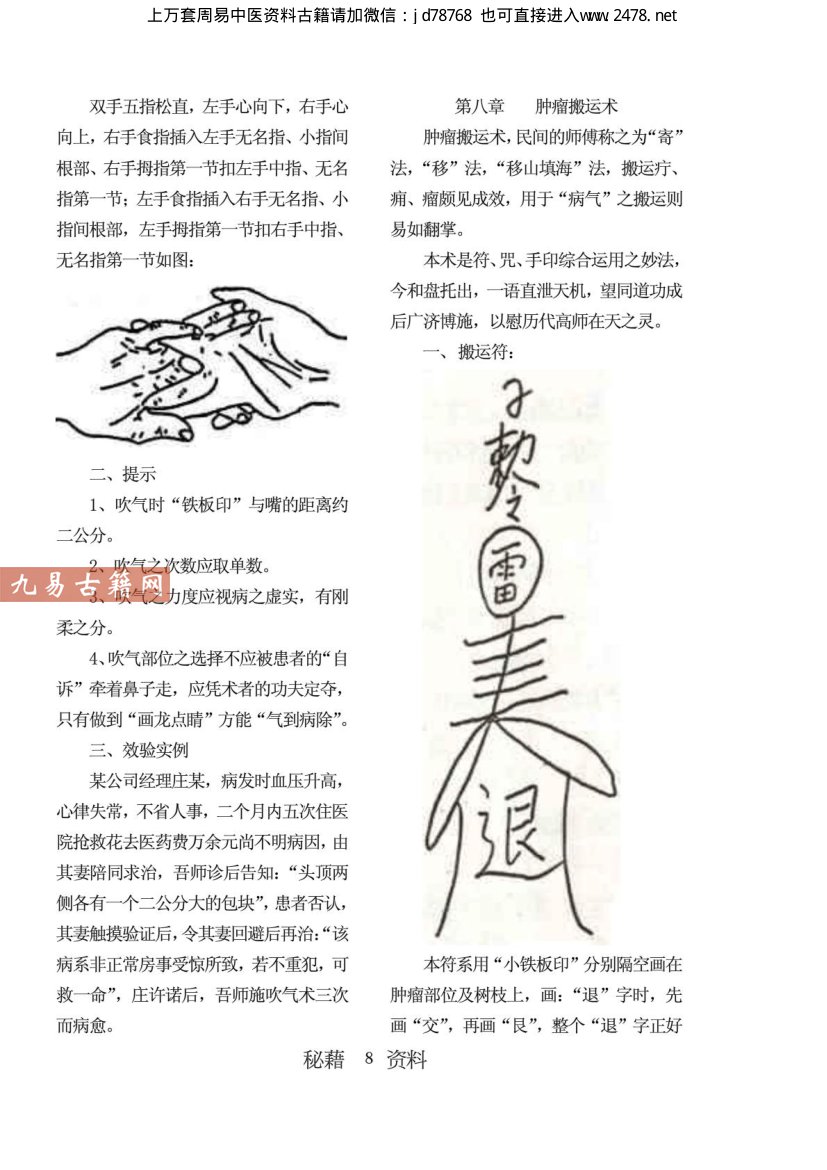 上万套周易中医资料古籍请加微信：jd78768 也可直接进入www.2478.net
双手五指松直，左手心向下，右手心
向上，右手食指插入左手无名指、小指间
根部、右手拇指第一节扣左手中指、无名
指第一节；左手食指插入右手无名指、小
指间根部，左手拇指第一节扣右手中指、
无名指第一节如图：
二、提示
1、吹气时“铁板印”与嘴的距离约
二公分。
2、吹气之次数应取单数。
九易古籍网
3、吹气之力度应视病之虚实，有刚
柔之分。
4、吹气部位之选择不应被患者的“自
诉”牵着鼻子走，应凭术者的功夫定夺，
只有做到“画龙点睛”方能“气到病除”。
三、效验实例
某公司经理庄某，病发时血压升高，
心律失常，不省人事，二个月内五次住医
院抢救花去医药费万余元尚不明病因，由
其妻陪同求治，吾师诊后告知：“头顶两
侧各有一个二公分大的包块”，患者否认，
其妻触摸验证后，令其妻回避后再治：“该
病系非正常房事受惊所致，若不重犯，可
救一命”，庄许诺后，吾师施吹气术三次
而病愈。
第八章 肿瘤搬运术
肿瘤搬运术，民间的师傅称之为“寄”
法，“移”法，“移山填海”法，搬运疔、
痈、瘤颇见成效，用于“病气”之搬运则
易如翻掌。
本术是符、咒、手印综合运用之妙法，
今和盘托出，一语直泄天机，望同道功成
后广济博施，以慰历代高师在天之灵。
一、搬运符：
敕令
雷
退
本符系用“小铁板印”分别隔空画在
肿瘤部位及树枝上，画：“退”字时，先
画“交”，再画“艮”，整个“退”字正好
秘藉 8 资料